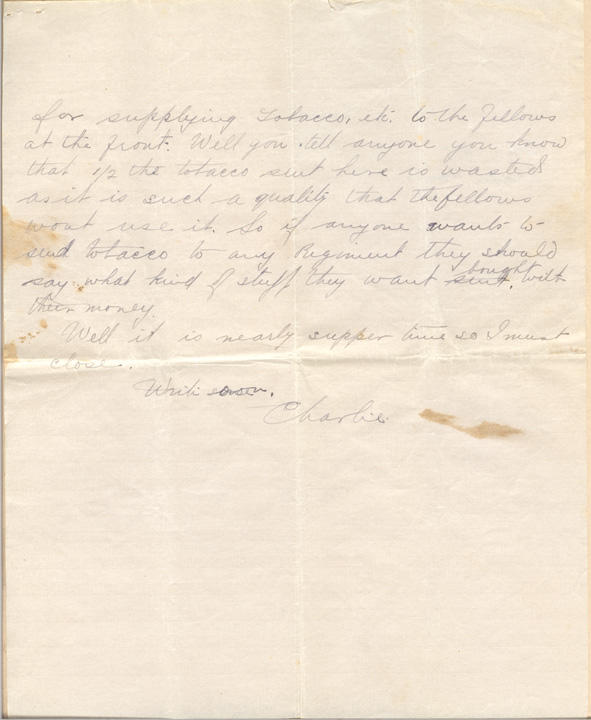 for supplying Tobacco, etc. to the fellows
at the front. Well you tell anyone you know
that 1/2 the tobacco sent here is wasted
as it is such a quality that the fellows
wont use it. So if anyone wants to
send tobacco to any Regiment they should
say what kind of stuff they want sent bought with
their money.
Well it is nearly supper time so I must
close.
Write soon.
Charlie